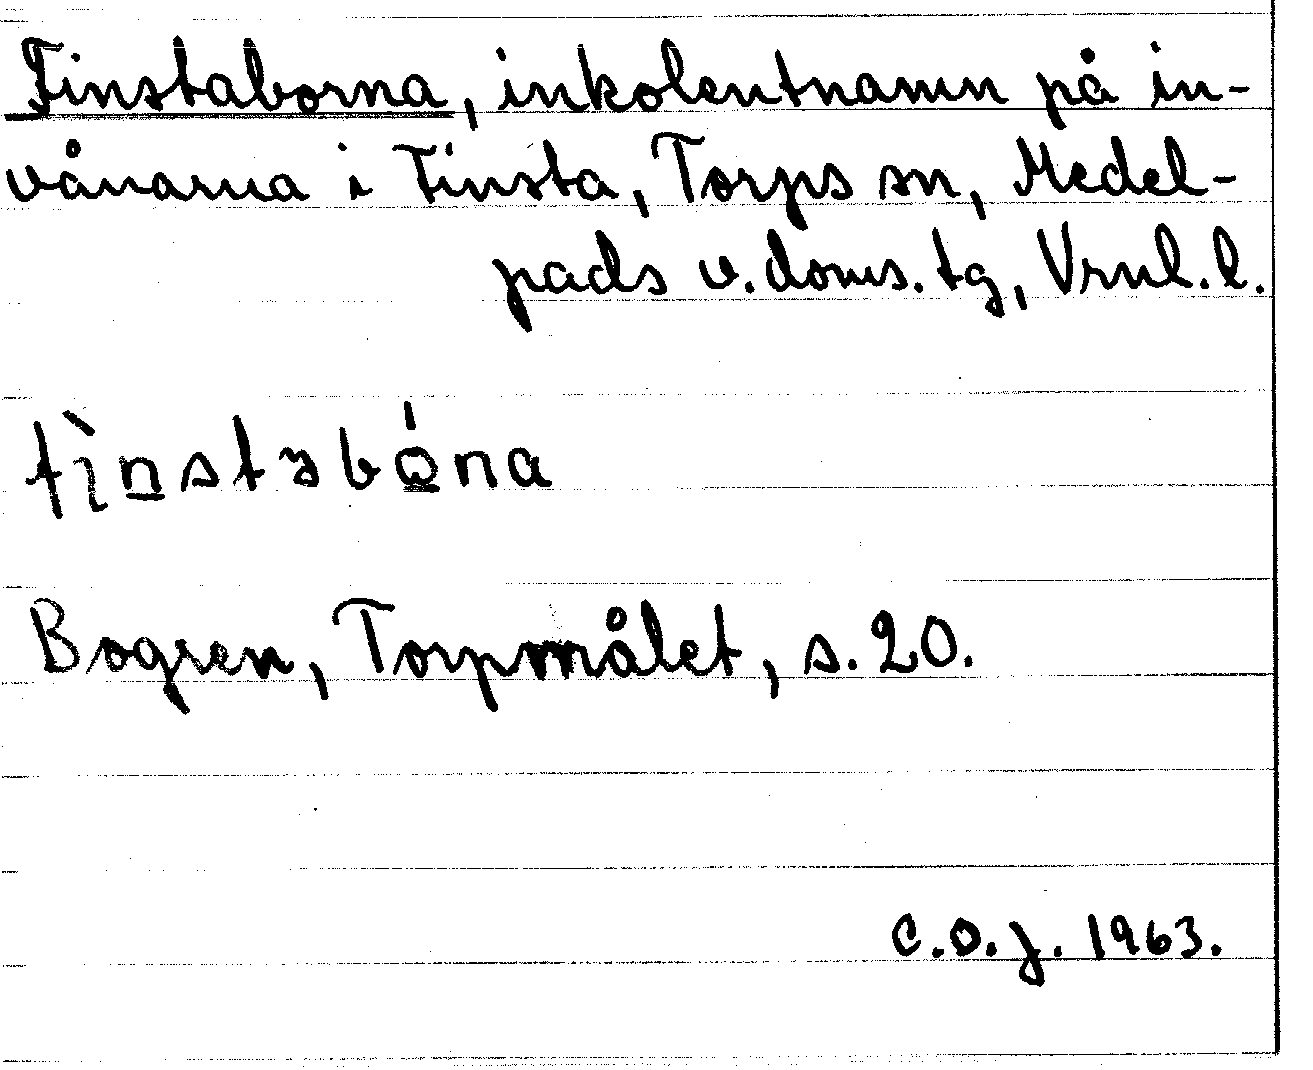 Tinstaborna, inkolentnamn på in-
vånarna i Tinsta, Torps sn, Medel-
pads v. doms. tg, Vrnl. l.
tìnstabóna
Bogren, Torpmålet, s. 20.
C.O.J. 1963.